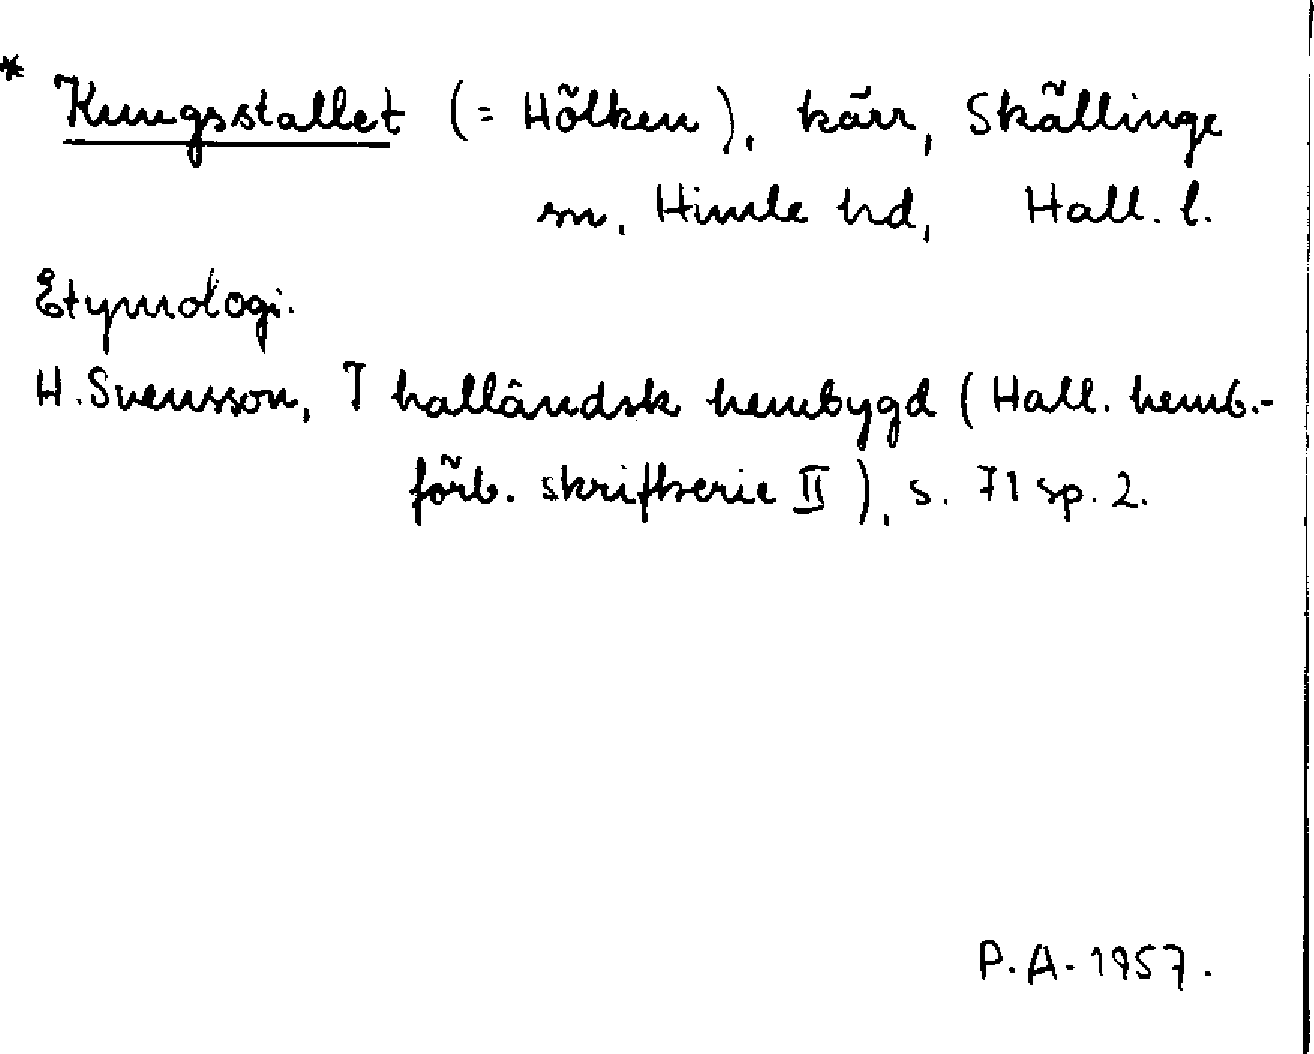 * Kungsstallet (= Hölken), kärr, Skällinge
sn, Himle hd, Hall. l.
Etymologi.
H. Svensson, I halländsk hembygd (Hall. hemb.-
förb. skriftserie II), s. 71 sp. 2.
P.A. 1957.